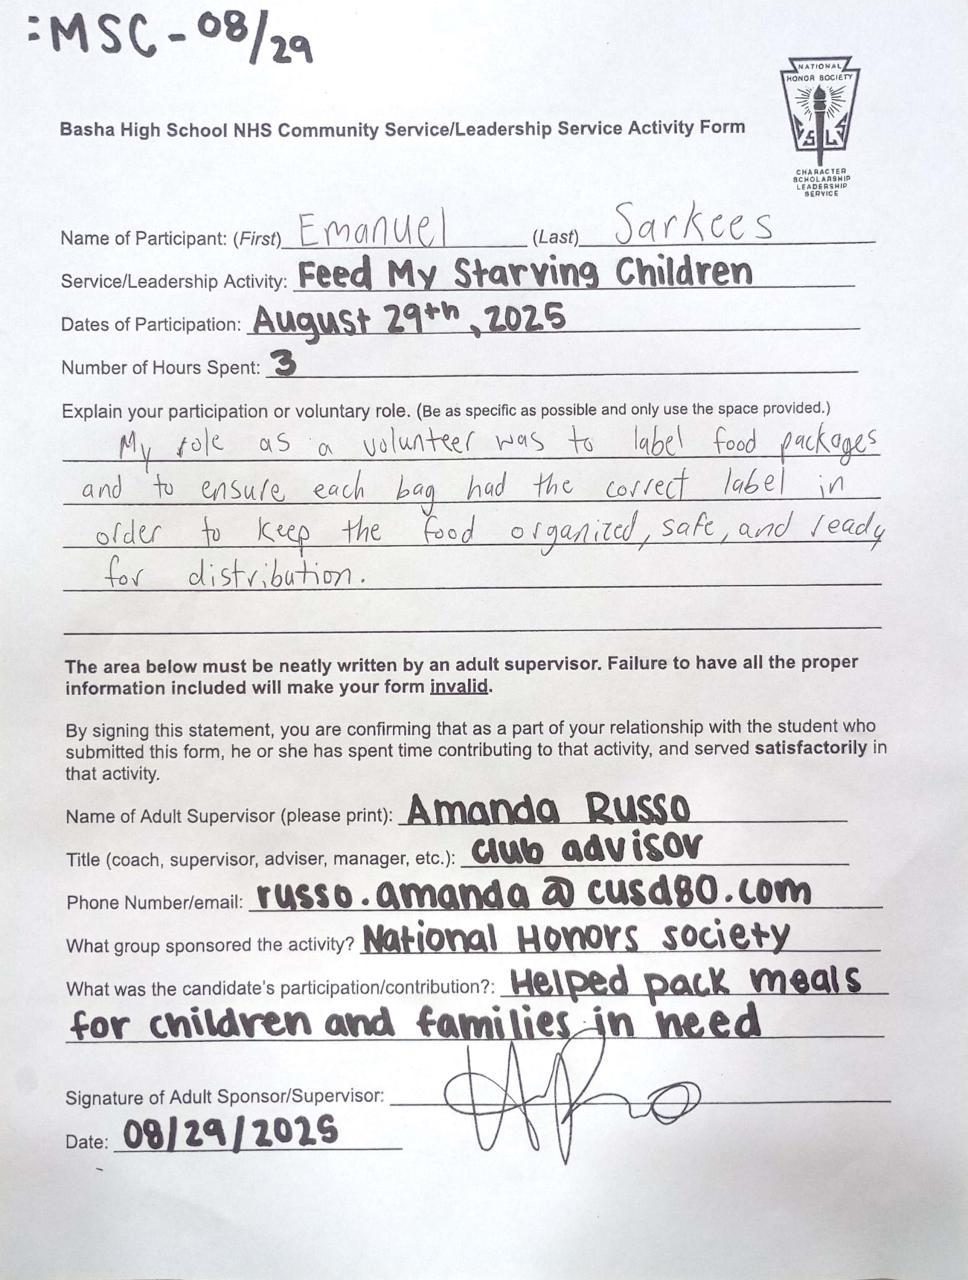 :MSC-08/29
NATIONAL
HONOR SOCIETY
S L S
CHARACTER
SCHOLARSHIP
LEADERSHIP
SERVICE
Basha High School NHS Community Service/Leadership Service Activity Form
Name of Participant: (First) Emanuel (Last) Sarkees
Service/Leadership Activity: Feed My Starving Children
Dates of Participation: August 29th, 2025
Number of Hours Spent: 3
Explain your participation or voluntary role. (Be as specific as possible and only use the space provided.)
My role as a volunteer was to label food packages
and to ensure each bag had the correct label in
order to keep the food organized, safe, and ready
for distribution.
The area below must be neatly written by an adult supervisor. Failure to have all the proper
information included will make your form invalid.
By signing this statement, you are confirming that as a part of your relationship with the student who
submitted this form, he or she has spent time contributing to that activity, and served satisfactorily in
that activity.
Name of Adult Supervisor (please print): Amanda Russo
Title (coach, supervisor, adviser, manager, etc.): club advisor
Phone Number/email: russo.amanda@cusd80.com
What group sponsored the activity? National Honors society
What was the candidate's participation/contribution?: Helped pack meals
for children and families in need
Signature of Adult Sponsor/Supervisor:
Date: 08/29/2025